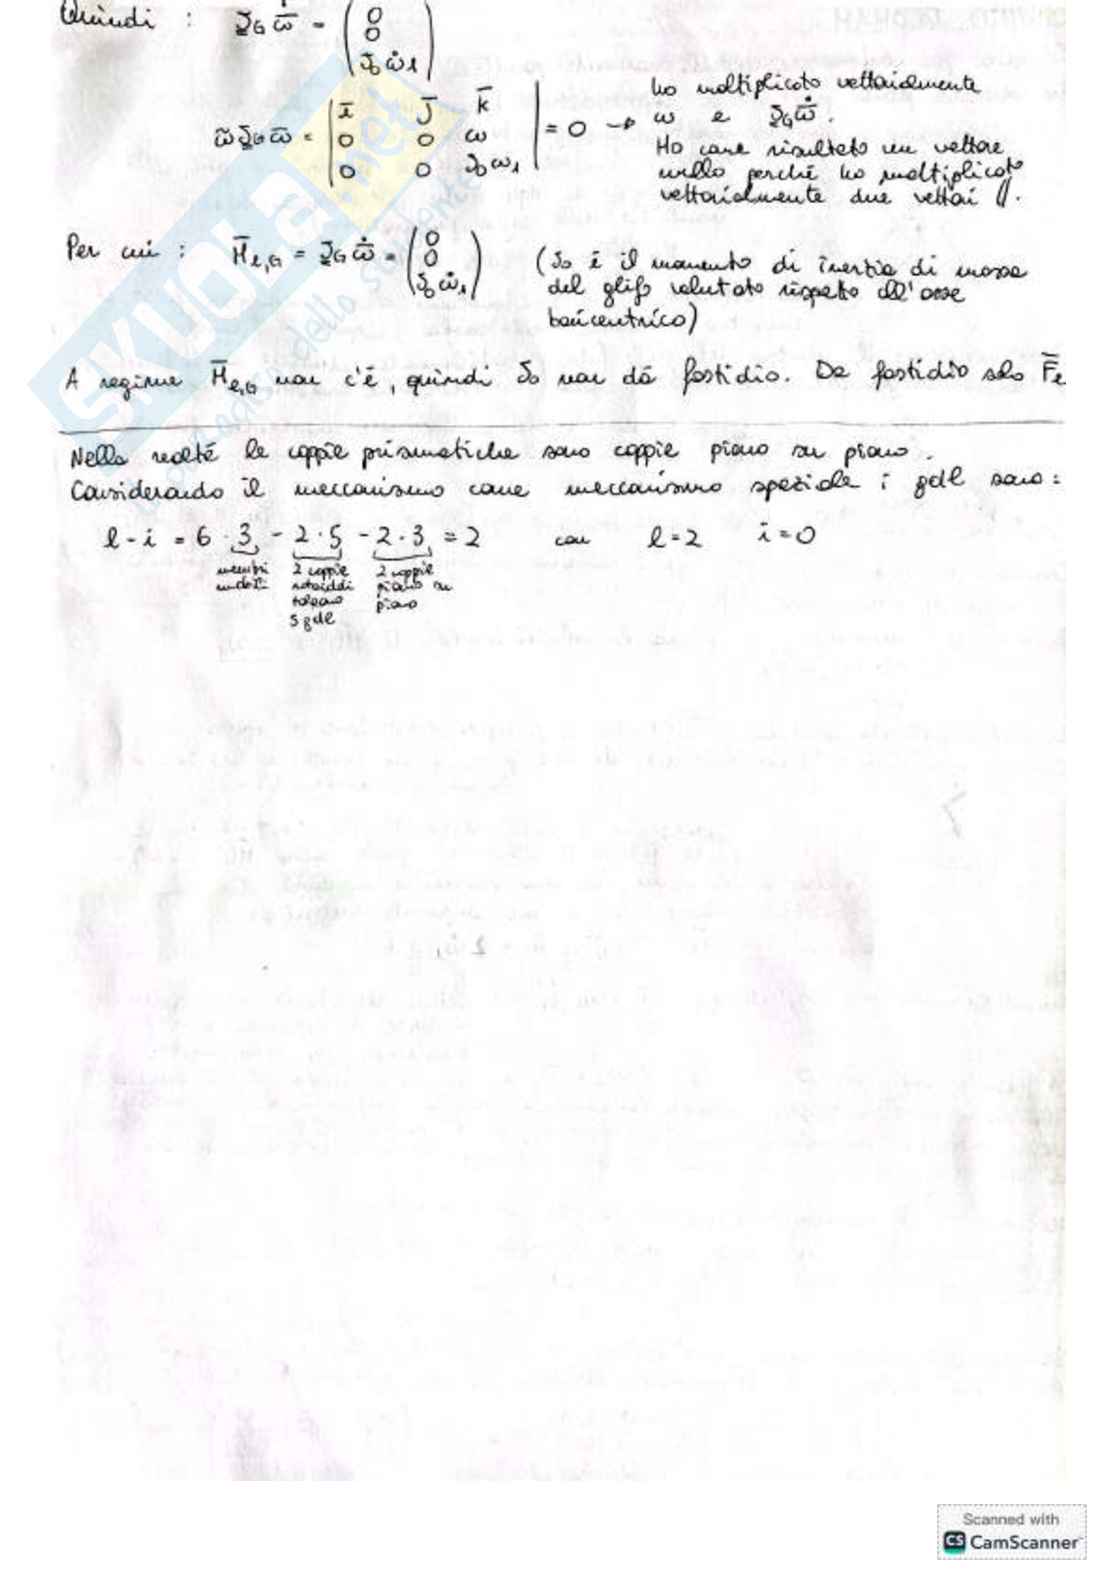 Quindi : J_G ω̇ = (0 0 J₀ω̇₁)
ω̃ J_G ω̄ = | ī j̄ k̄ | = 0 → ho moltiplicato vettorialmente
0 0 ω
0 0 J₀ω₁
ω e J_G ω̇.
Ho come risultato un vettore
nullo perché ho moltiplicato
vettorialmente due vettori //.
Per cui : M̄_{e,G} = J_G ω̇ = (0 0 J₀ω̇₁) (J₀ è il momento di inerzia di massa
del glifo valutato rispetto all'asse
baricentrico)
A regime M̄_{e,G} non c'è, quindi J₀ non dà fastidio. Da fastidio solo F̄_e
Nella realtà le coppie prismatiche sono coppie piano su piano.
Considerando il meccanismo come meccanismo spaziale i gdl sono:
l - i = 6 · 3 - 2·5 - 2·3 = 2 con l = 2 i = 0
membri
mobili
2 coppie
rotoidali
tolgono
5 gdl
2 coppie
piano su
piano
SKUOLA.net
Scanned with
CS CamScanner